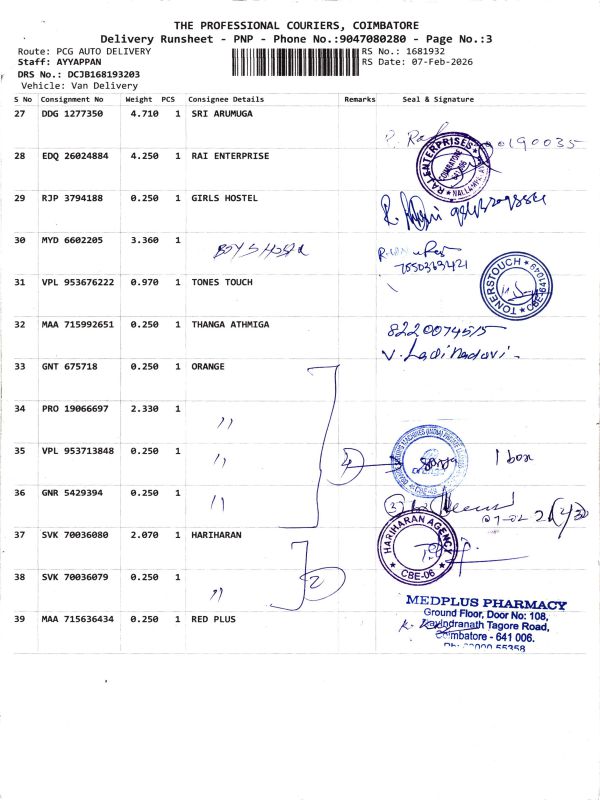 THE PROFESSIONAL COURIERS, COIMBATORE
Delivery Runsheet - PNP - Phone No.:9047080280 - Page No.:3
Route: PCG AUTO DELIVERY RS No.: 1681932
Staff: AYYAPPAN RS Date: 07-Feb-2026
DRS No.: DCJB168193203
Vehicle: Van Delivery
S No Consignment No Weight PCS Consignee Details Remarks Seal & Signature
27 DDG 1277350 4.710 1 SRI ARUMUGA
28 EDQ 26024884 4.250 1 RAI ENTERPRISE
RAI ENTERPRISES
COIMBATORE
29 RJP 3794188 0.250 1 GIRLS HOSTEL
30 MYD 6602205 3.360 1 BOYS HOSTEL
7550363421
31 VPL 953676222 0.970 1 TONES TOUCH
TONERSTOUCH
32 MAA 715992651 0.250 1 THANGA ATHMIGA
8220074515
33 GNT 675718 0.250 1 ORANGE
34 PRO 19066697 2.330 1 "
35 VPL 953713848 0.250 1 "
4
1 box
36 GNR 5429394 0.250 1 "
3
37 SVK 70036080 2.070 1 HARIHARAN
HARIHARAN AGENCY
CBE-06
38 SVK 70036079 0.250 1 "
2
39 MAA 715636434 0.250 1 RED PLUS
MEDPLUS PHARMACY
Ground Floor, Door No: 108,
Ravindranath Tagore Road,
Coimbatore - 641 006.